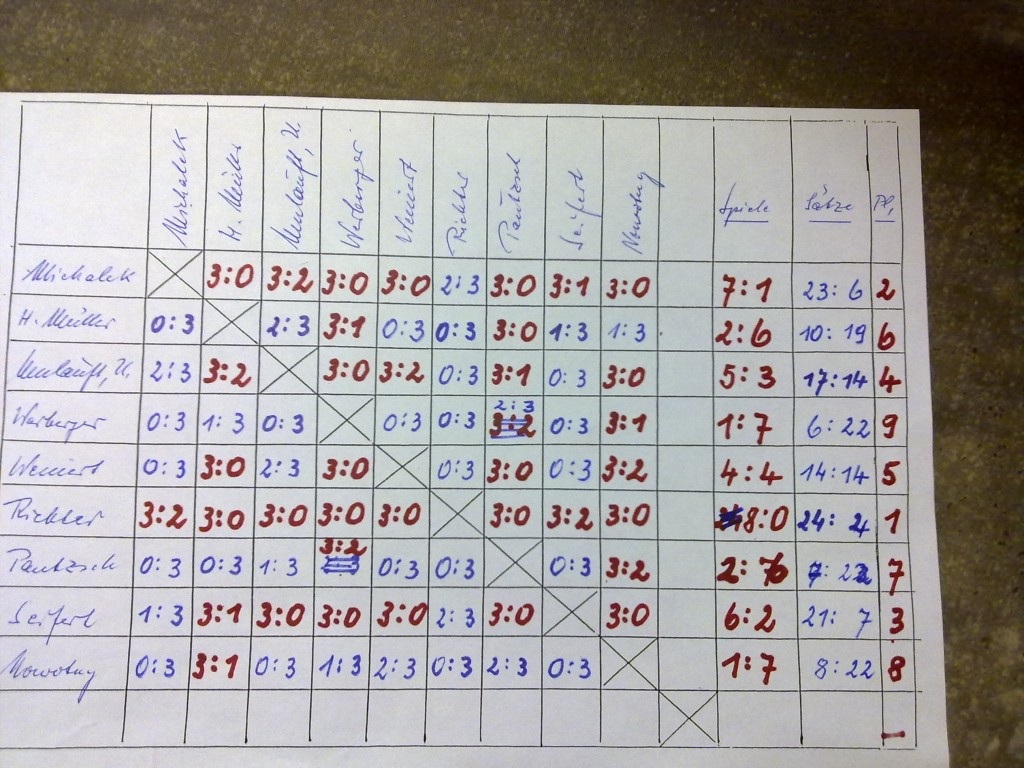 Michalek H. Müller Umlauft, U. Warberger Weinert Richter Pautzsch Seifert Nowotny Spiele Sätze Pl.
Michalek 3:0 3:2 3:0 3:0 2:3 3:0 3:1 3:0 7:1 23:6 2
H. Müller 0:3 2:3 3:1 0:3 0:3 3:0 1:3 1:3 2:6 10:19 6
Umlauft, U. 2:3 3:2 3:0 3:2 0:3 3:1 0:3 3:0 5:3 17:14 4
Warberger 0:3 1:3 0:3 0:3 0:3 2:3 0:3 3:1 1:7 6:22 9
Weinert 0:3 3:0 2:3 3:0 0:3 3:0 0:3 3:2 4:4 14:14 5
Richter 3:2 3:0 3:0 3:0 3:0 3:0 3:2 3:0 8:0 24:4 1
Pautzsch 0:3 0:3 1:3 3:2 0:3 0:3 0:3 3:2 2:6 7:22 7
Seifert 1:3 3:1 3:0 3:0 3:0 2:3 3:0 3:0 6:2 21:7 3
Nowotny 0:3 3:1 0:3 1:3 2:3 0:3 2:3 0:3 1:7 8:22 8